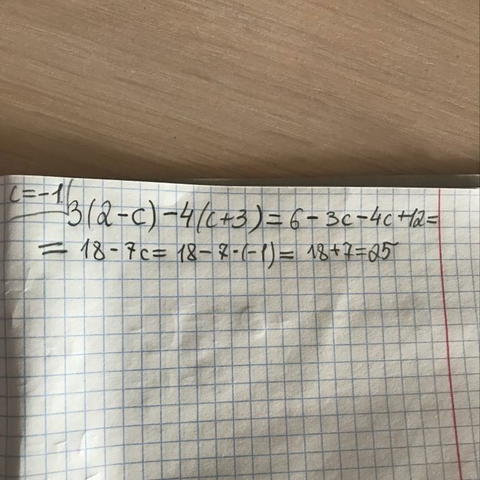 c=-1
3(2-c)-4(c+3)=6-3c-4c+12=
=18-7c=18-7·(-1)=18+7=25